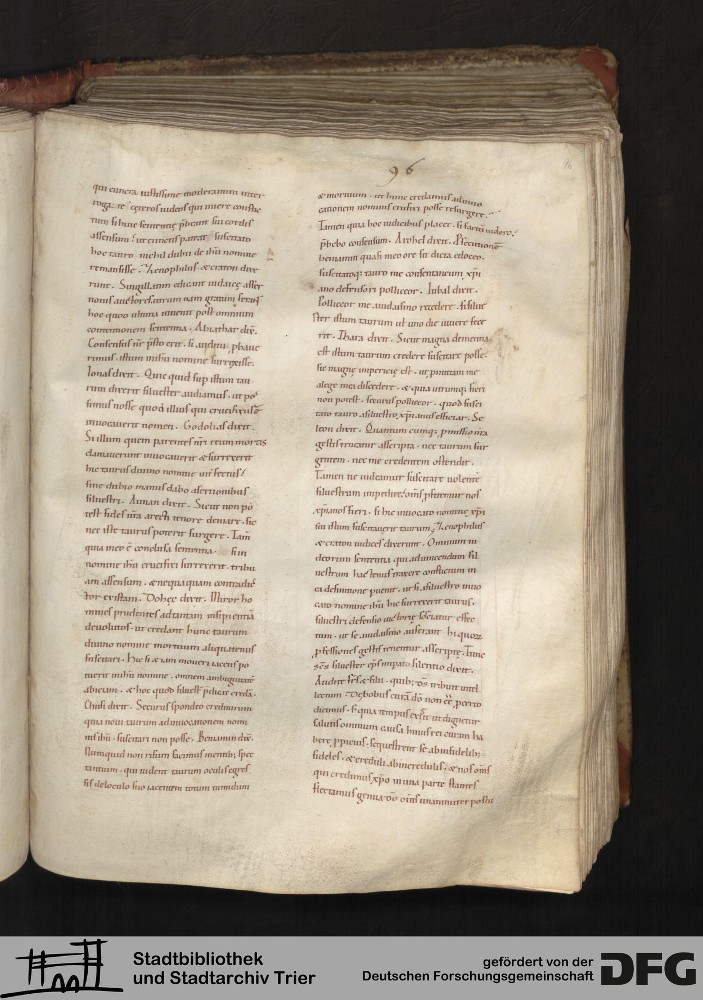 96
qui cuncta iustissime moderamini inter
rogate ceteros iudeos qui
tum si huic sententię p̄beant sui cordis
assensum. ut
hoc tauro. nichil dubii de ih̄u nomine
remansisse. Zenophilus & craton dixe
runt. Singillatim edicant iudaicę asser
tionis auctores utrum nam gratum
hoc quod ultima inuenit post omnium
contentionem sententia. Abiathar dix̄.
Consensus n̄r p̄sto erit. si
rimus. istum in ih̄u nomine surrexisse.
Ionas dixit. Quicquid sup istum tau
rum dixerit siluester audiamus. ut pos
simus nosse quod illius qui crucifixus ē
inuocauerit nomen. Godolias dixit.
Si illum quem parentes n̄ri reum mortis
clamauerunt inuocauerit & surrexerit
hic taurus diuino nomine int̄fectus.
sine dubio manus dabo
siluestri. Annan dixit. Sicut non po
test fides m̄a arecti tenore deuiare. sic
nec iste taurus poterit surgere. Tam̄
quia meo ē conclusa sententia. si in
nomine ih̄u crucifixi surrexerit. tribu
am assensum. & nequaquam contradic
tor existam. Dohęc dixit. Miror ho
mines prudentes ad tantam insipientiā
deuolutos. ut credant hunc taurum
diuino nomine mortuum aliquatenus
suscitari. Hic si etiam moueri iacens po
tuerit in ih̄u nomine. omnem ambiguitatē
abiciam. & hoc quod siluest̄ p̄dicat credā.
Chusi dixit. Securus spondeo crediturum
quia noui taurum ad inuocationem nomi
nis ih̄u. suscitari non posse. Beniamin dix̄.
Numquid non risum facimus mentib; spec
tantium. qui uident taurum oculis egres
sis de loculo suo iacentem totum tumidum
& mortuum. ut hunc credamus ad inuo
cationem nominis crucifixi posse resurgere.
Tamen quia hoc iudicibus placet. si factū uidero.
p̄bebo consensum. Arohel dixit.
beniamin quasi meo ore sit dicta edoceo.
suscitatoq; tauro me consentaneum xp̄i
ano defensori polliceor. Iubal dixit.
Polliceor me a iudaismo recedere. si silue
ster istum taurum ut uno die uiuere fece
rit. Thara dixit. Sicut magna dementia
est istum taurum credere suscitare posse.
sic magnę imperitię est. ut p̄mittam me
alege mea discedere. & quia utrumq; fieri
non potest. securus polliceor. quod susci
tato tauro asiluestro xp̄ianus efficiar. Se
leon dixit. Quantum cumq; p̄missio m̄a
gestis teneatur asscripta. nec taurum sur
gentem. nec me credentem ostendit.
Tamen ne uideamur suscitare uolentē
siluestrum impedire. om̄s p̄fitemur nos
xp̄ianos fieri. si hic inuocato nomine xp̄i
sui istum suscitauerit taurum. Zenophilus
& craton iudices dixerunt. Omnium iu
deorum sententia. qui ad uincendum sil
uestrum hactenus traxere conflictum in
ea definitione
cato nomine ih̄u hic surrexerit taurus.
siluestri defensio
tum. ut se a iudaismo auferant hi quorum
p̄fessiones gestis tenentur asscriptę. Tunc
sc̄s siluester ep̄s imperato silentio dixit.
Audite fr̄s & filii. quib; d̄s tribuit intel
lectum.
dicimus. si qua tempus exegerit ut dignetur
salutis omnium causa huius rei curam ha
bere. p̄pterea. sequestrent se ab infidelib;
fideles. & creduli ab incredulis. & nos om̄s
qui credimus xp̄o in una parte stantes
flectamus genua. d̄o om̄s unanimiter
Stadtbibliothek
und Stadtarchiv Trier
gefördert von der
Deutschen Forschungsgemeinschaft
DFG